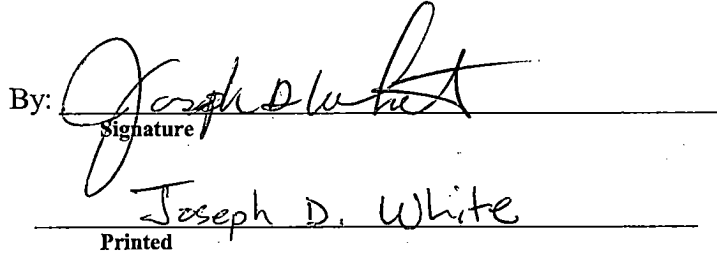 By: Joseph D White
Signature
Joseph D. White
Printed